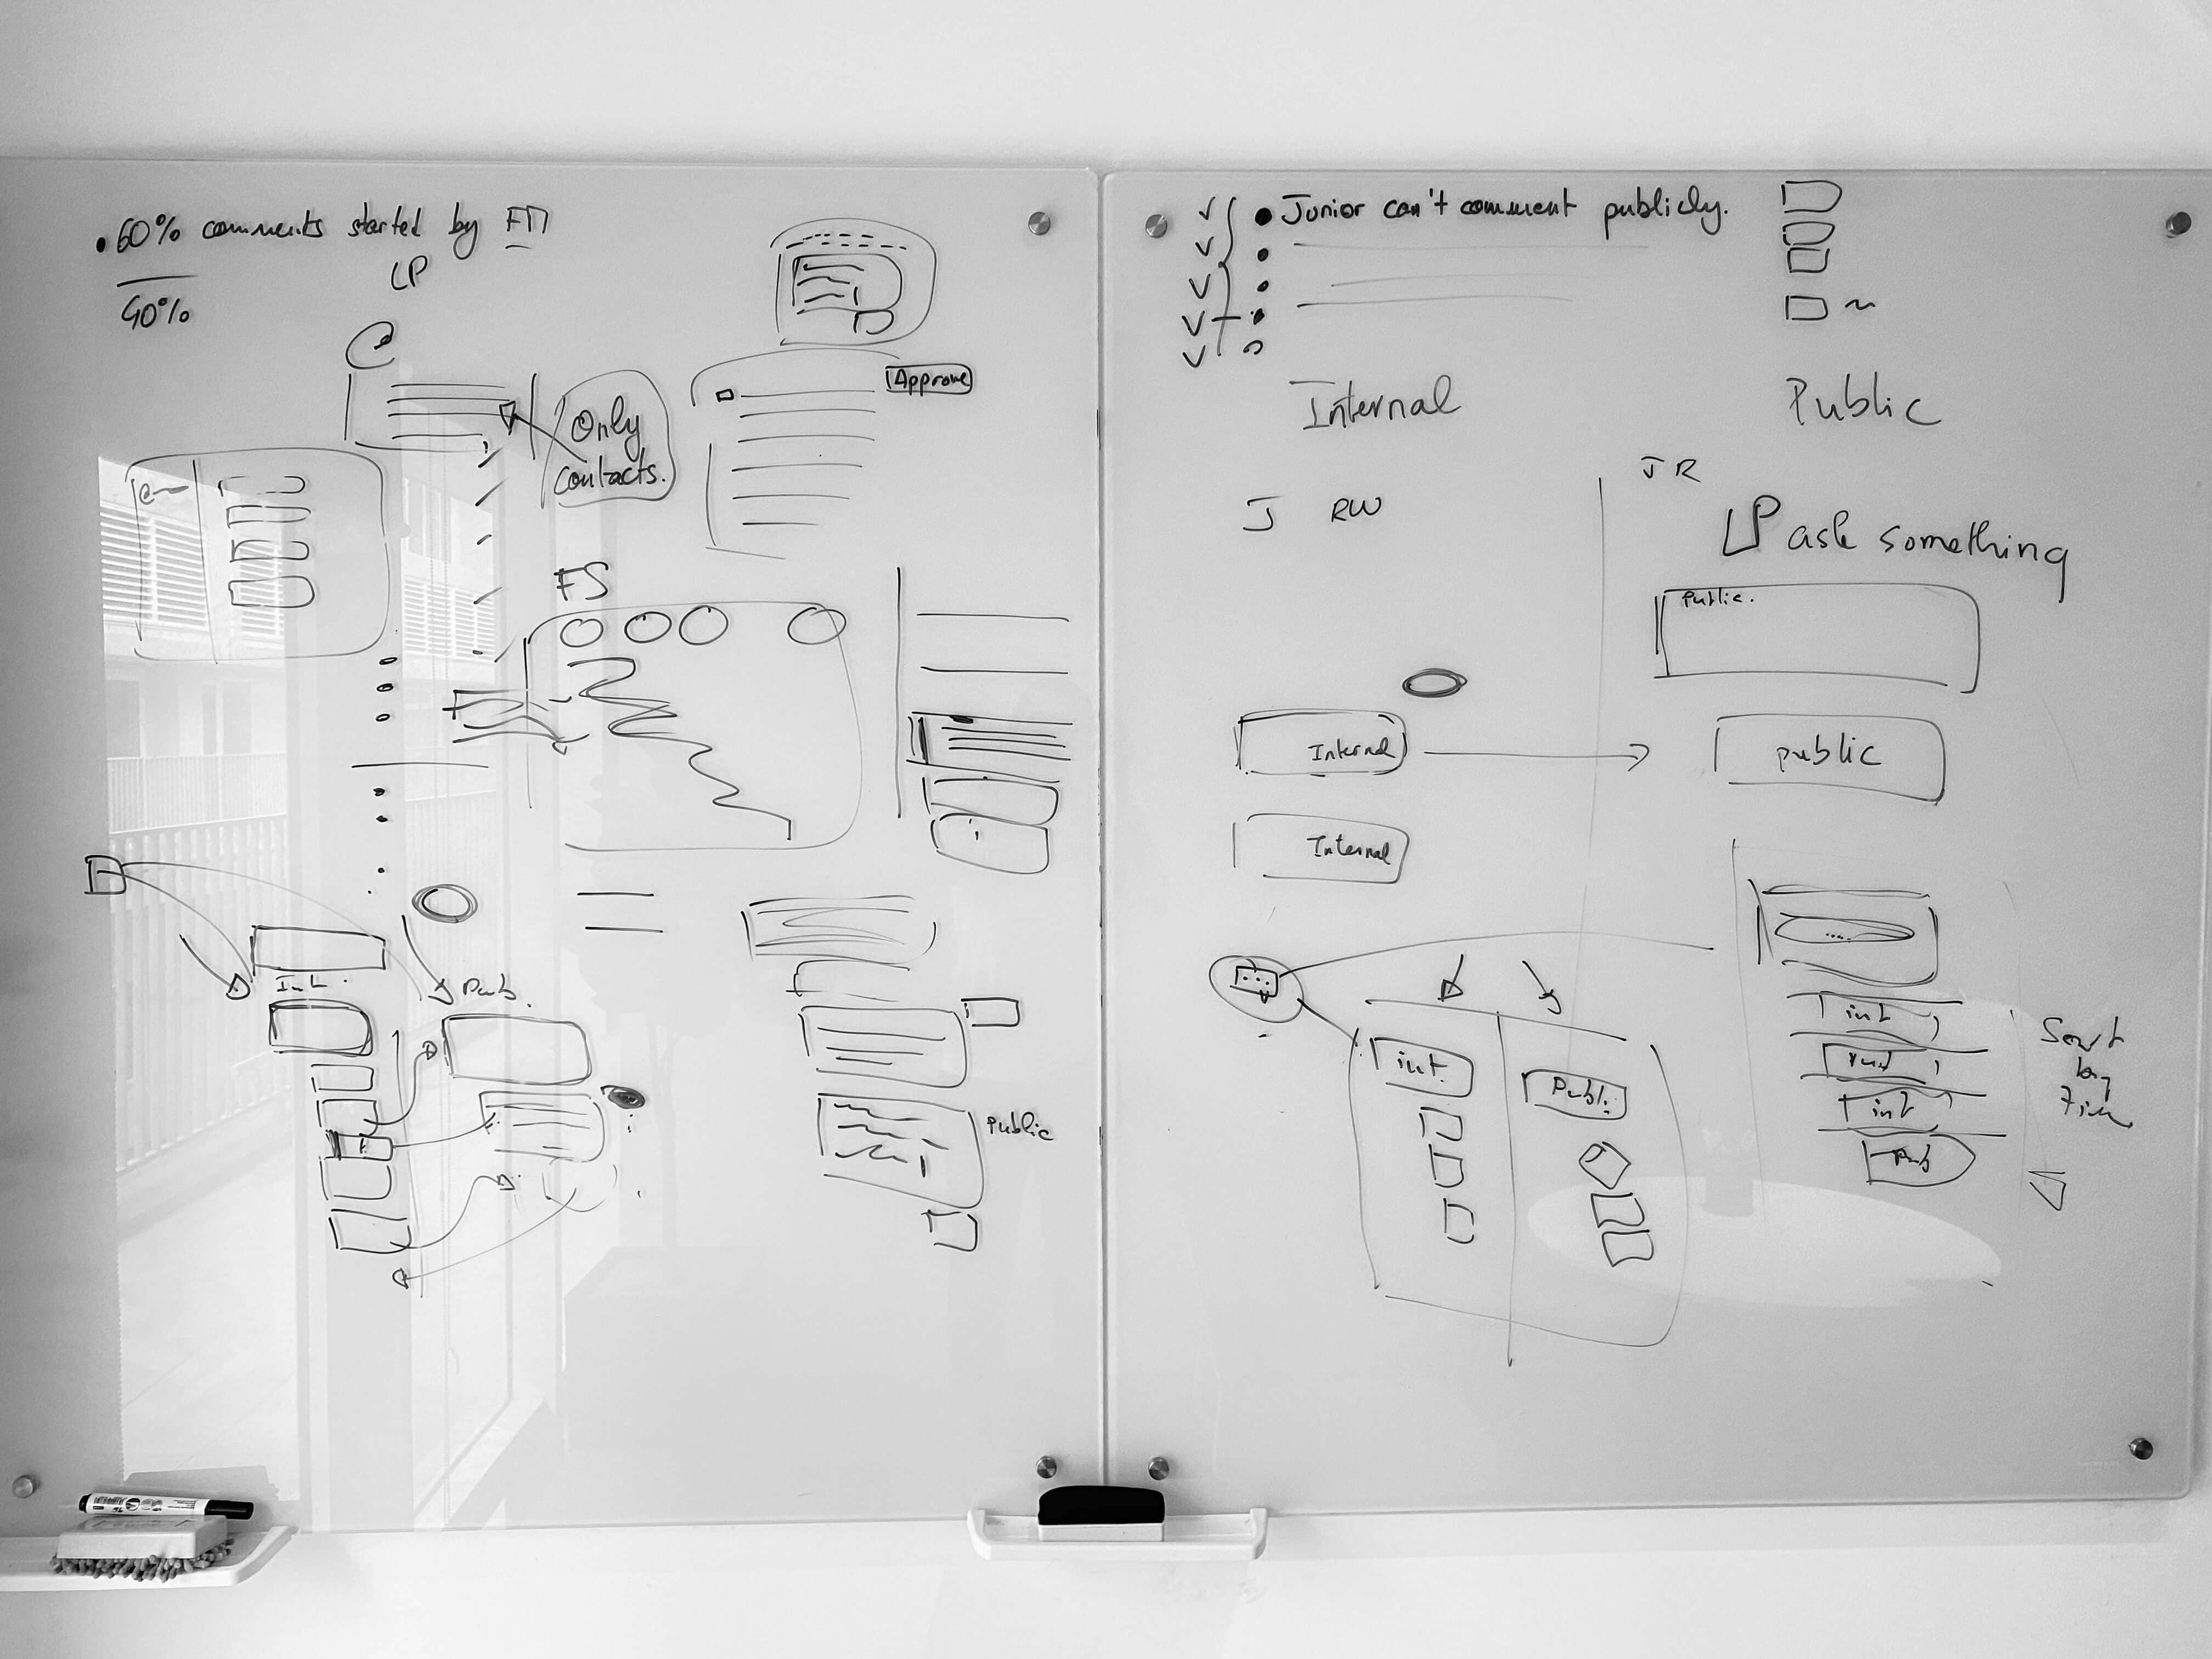 60% comments started by FM
LP
40%
Approve
Only
contacts.
FS
Int.
Pub.
public
Junior can't comment publicly.
Internal
Public
J RW
J R
LP ask something
Public.
Internal
public
Internal
int.
Publ.
int
int
Pub
Sort
by